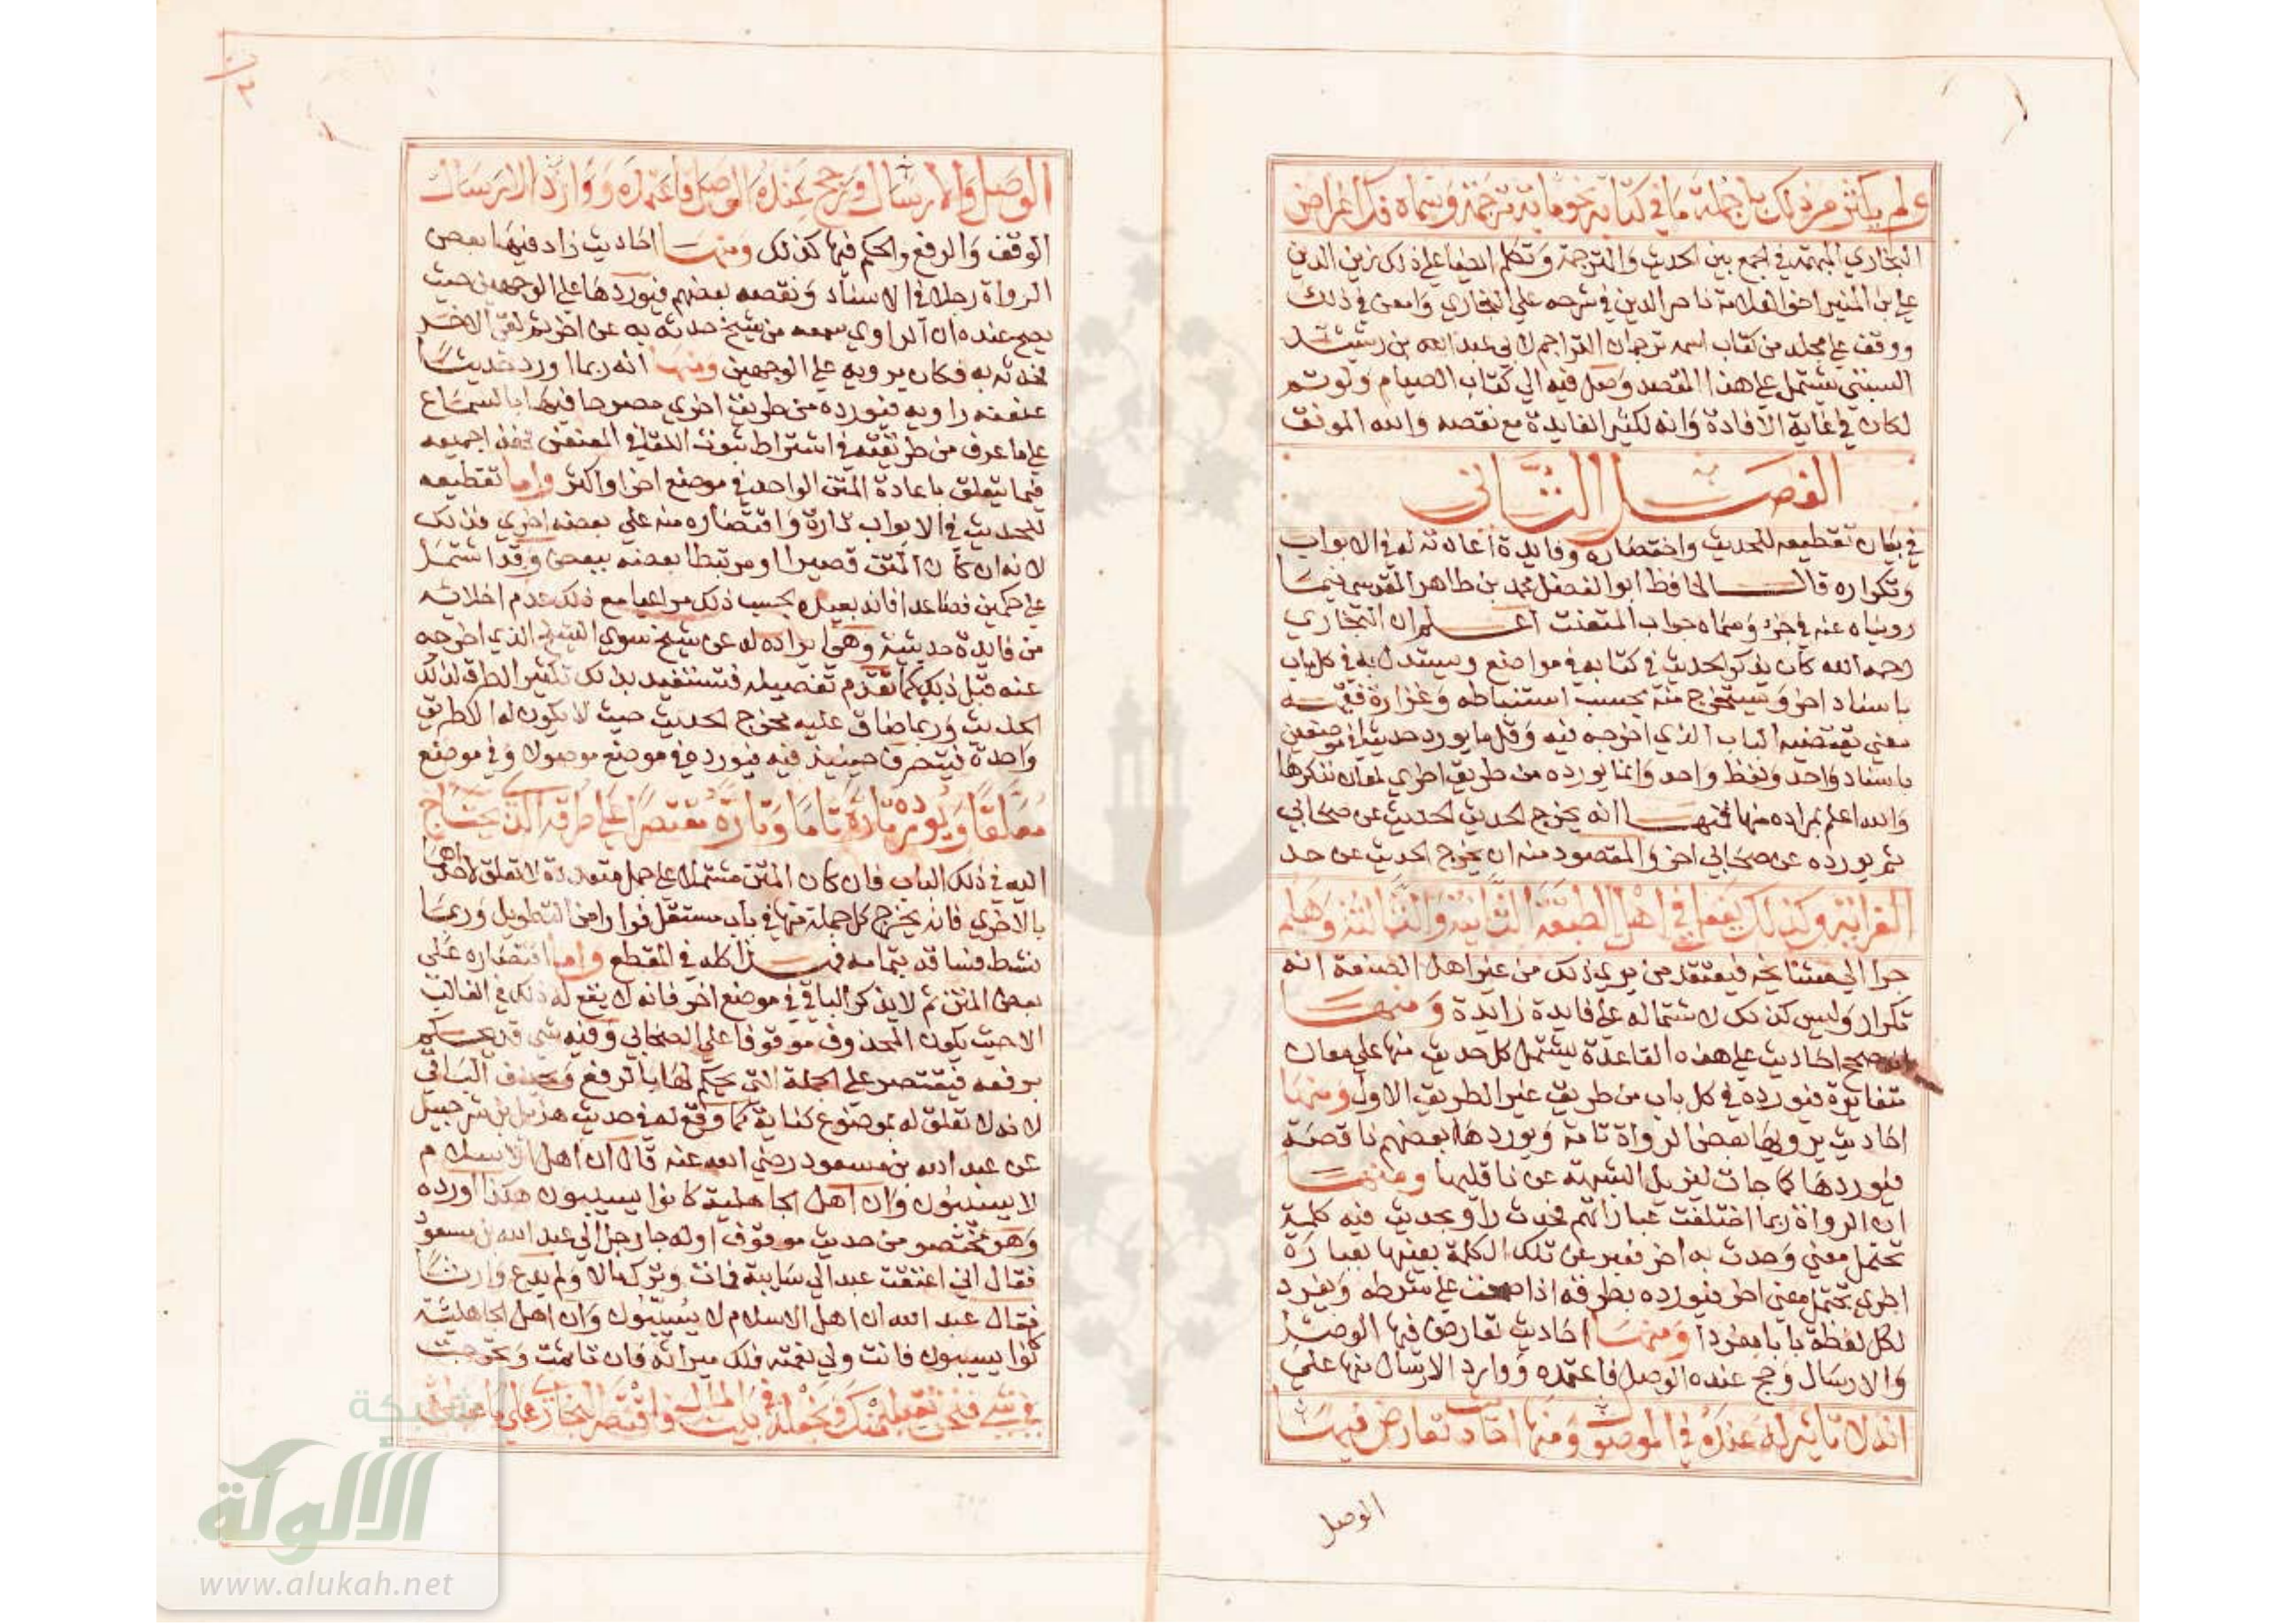 ولم يكثر من ذلك بل جملة ما في كتابه نحو ماية ترجمة وسماه فك اغراض
البخاري المبهمة في الجمع بين الحديث والترجمة وتكلم ايضا علي ذلك زين الدين
علي ابن المنير اخو العلامة ناصر الدين في شرحه علي البخاري وامعن في ذلك
ووقفت علي مجلد من كتاب اسمه ترجمان التراجم لابي عبد الله بن رشيد
السبتي يشتمل علي هذا المقصد وصل فيه الي كتاب الصيام ولو تم
لكان في غاية الافادة وانه لكثير الفايدة مع نقصه والله الموفق
الفصل الثاني
في بيان تقطيعه للحديث واختصاره وفايدة اعادته له في الابواب
وتكراره قال الحافظ ابو الفضل محمد بن طاهر المقدسي فيما
رويناه عنه في جزء وسماه جواب المتعنت اعلم ان البخاري
رحمه الله كان يذكر الحديث في كتابه في مواضع ويستدل به في كل باب
باسناد اخر ويستخرج منه بحسب استنباطه وغزارة فقهه
معني يقتضيه الباب الذي اخرجه فيه وقل ما يورد حديثا في موضعين
باسناد واحد ولفظ واحد وانما يورده من طريق اخري لمعان نذكرها
والله اعلم بمراده منها فمنها انه يخرج الحديث الحديث عن صحابي
ثم يورده عن صحابي اخر والمقصود منه ان يخرج الحديث عن حد
الغرابة وكذلك يفعل في اهل الطبقة الثانية والثالثة وهلم
جرا الي مشايخه فيعتقد من يري ذلك من غير اهل الصنعة انه
تكرار وليس كذلك لاشتماله علي فايدة زايدة ومنها
انه صحح احاديث علي هذه القاعدة يشتمل كل حديث منها علي معان
متغايرة فيورده في كل باب من طريق غير الطريق الاول ومنها
احاديث يرويها بعض الرواة تامة ويوردها بعضهم ناقصة
فيوردها كما جات ليزيل الشبهة عن ناقليها ومنها
ان الرواة ربما اختلفت عباراتهم فحدث راو بحديث فيه كلمة
تحتمل معني وحدث به اخر فعبر عن تلك الكلمة بعينها بعبارة
اخري تحتمل معني اخر فيورده بطرقه اذا صحت علي شرطه ويفرد
لكل لفظة بابا مفردا ومنها احاديث تعارض فيها الوصل
والارسال ورجح عنده الوصل فاعتمده واورد الارسال منها علي
انه لا تاثير له عنده في الموصول ومنها احاديث تعارض فيها
الوصل
الوصل والارسال ورجح عنده الوصل فاعتمده واورد الارسال
الوقف والرفع والحكم فيها كذلك ومنها احاديث زاد فيها بعض
الرواة رجلا في الاسناد ونقصه بعضهم فيوردها علي الوجهين حيث
يصح عنده ان الراوي سمعه من شيخ حدثه به عن اخر ثم لقي الاخر
فحدثه به فكان يرويه علي الوجهين ومنها انه ربما اورد حديثا
عنعنه راويه فيورده من طريق اخري مصرحا فيها بالسماع
علي ما عرف من طريقته في اشتراط ثبوت اللقا في المعنعن فهذا جميعه
فيما يتعلق باعادة المتن الواحد في موضع اخر او اكثر واما تقطيعه
للحديث في الابواب تارة واقتصاره منه علي بعضه اخري فذلك
لانه ان كان المتن قصيرا او مرتبطا بعضه ببعض وقد اشتمل
علي حكمين فصاعدا فانه يعيده بحسب ذلك مراعيا مع ذلك عدم اخلائه
من فايدة حديثية وهي ايراده له عن شيخ سوي الشيخ الذي اخرجه
عنه قبل ذلك كما تقدم تفصيله فتستفيد بذلك تكثير الطرق لذلك
الحديث وربما ضاق عليه مخرج الحديث حيث لا يكون له الا طريق
واحدة فيتصرف حينيذ فيه فيورده في موضع موصولا وفي موضع
معلقا ويورده تارة تاما وتارة مقتصرا علي طرفه الذي يحتاج
اليه في ذلك الباب فان كان المتن مشتملا علي جمل متعددة لا تعلق لاحداها
بالاخري فانه يخرج كل جملة منها في باب مستقل فرارا من التطويل وربما
نشط فساقه بتمامه فهذا كله في التقطع واما اقتصاره علي
بعض المتن ثم لا يذكر الباقي في موضع اخر فانه لا يقع له ذلك في الغالب
الا حيث يكون المحذوف موقوفا علي الصحابي وفيه شي قد يحكم
برفعه فيقتصر علي الجملة التي يحكم لها بالرفع ويحذف الباقي
لانه لا تعلق له بموضوع كتابه كما وقع له في حديث هزيل بن شرحبيل
عن عبد الله بن مسعود رضي الله عنه قال ان اهل الاسلام
لا يسيبون وان اهل الجاهلية كانوا يسيبون هكذا اورده
وهو مختصر من حديث موقوف اوله جا رجل الي عبد الله بن مسعود
فقال اني اعتقت عبدا لي سايبة فمات وترك مالا ولم يدع وارثا
فقال عبد الله ان اهل الاسلام لا يسيبون وان اهل الجاهلية
كانوا يسيبون فانت ولي نعمته فلك ميراثه فان تاثمت وتحرجت
في شي فنحن نقبله منك ونجعله في بيت المال فاقتصر البخاري علي
شبكة
الألوكة
www.alukah.net